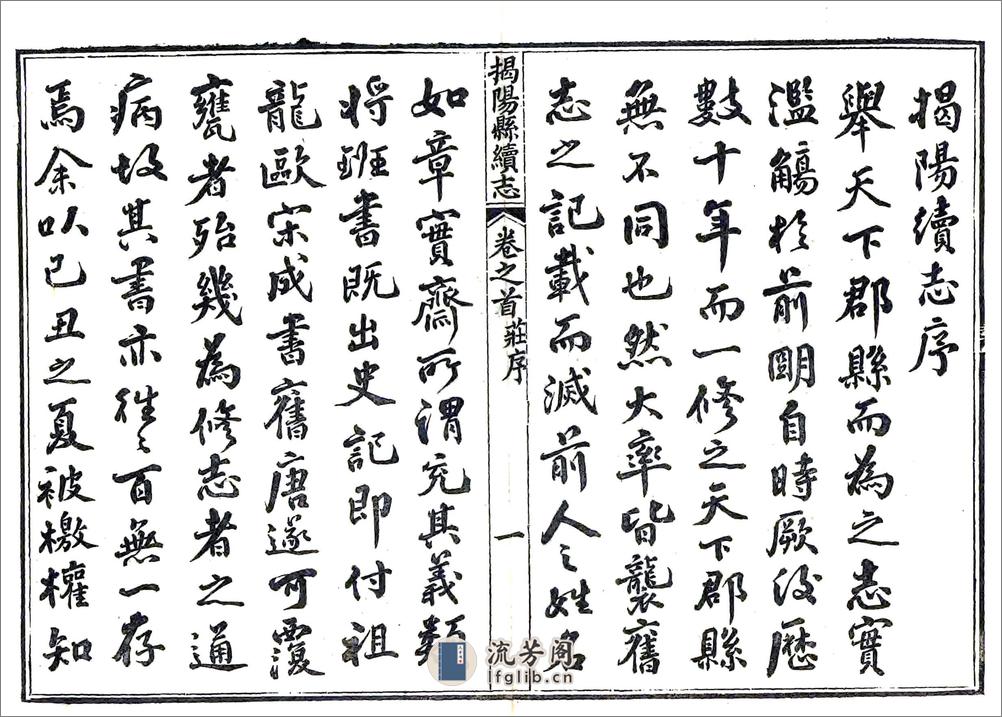 揭陽續志序
舉天下郡縣而為之志實
濫觴於前明自時厥後歷
數十年而一修之天下郡縣
無不同也然大率皆襲舊
志之記載而滅前人之姓名
揭陽縣續志
卷之首莊序
一
如章實齋所謂充其義類
將班書既出史記即付祖
龍歐宋成書舊唐遂可覆
甕者殆幾為修志者之通
病故其書亦往〻百無一存
焉余以己丑之夏被檄權知
流芳阁
lfglib.cn